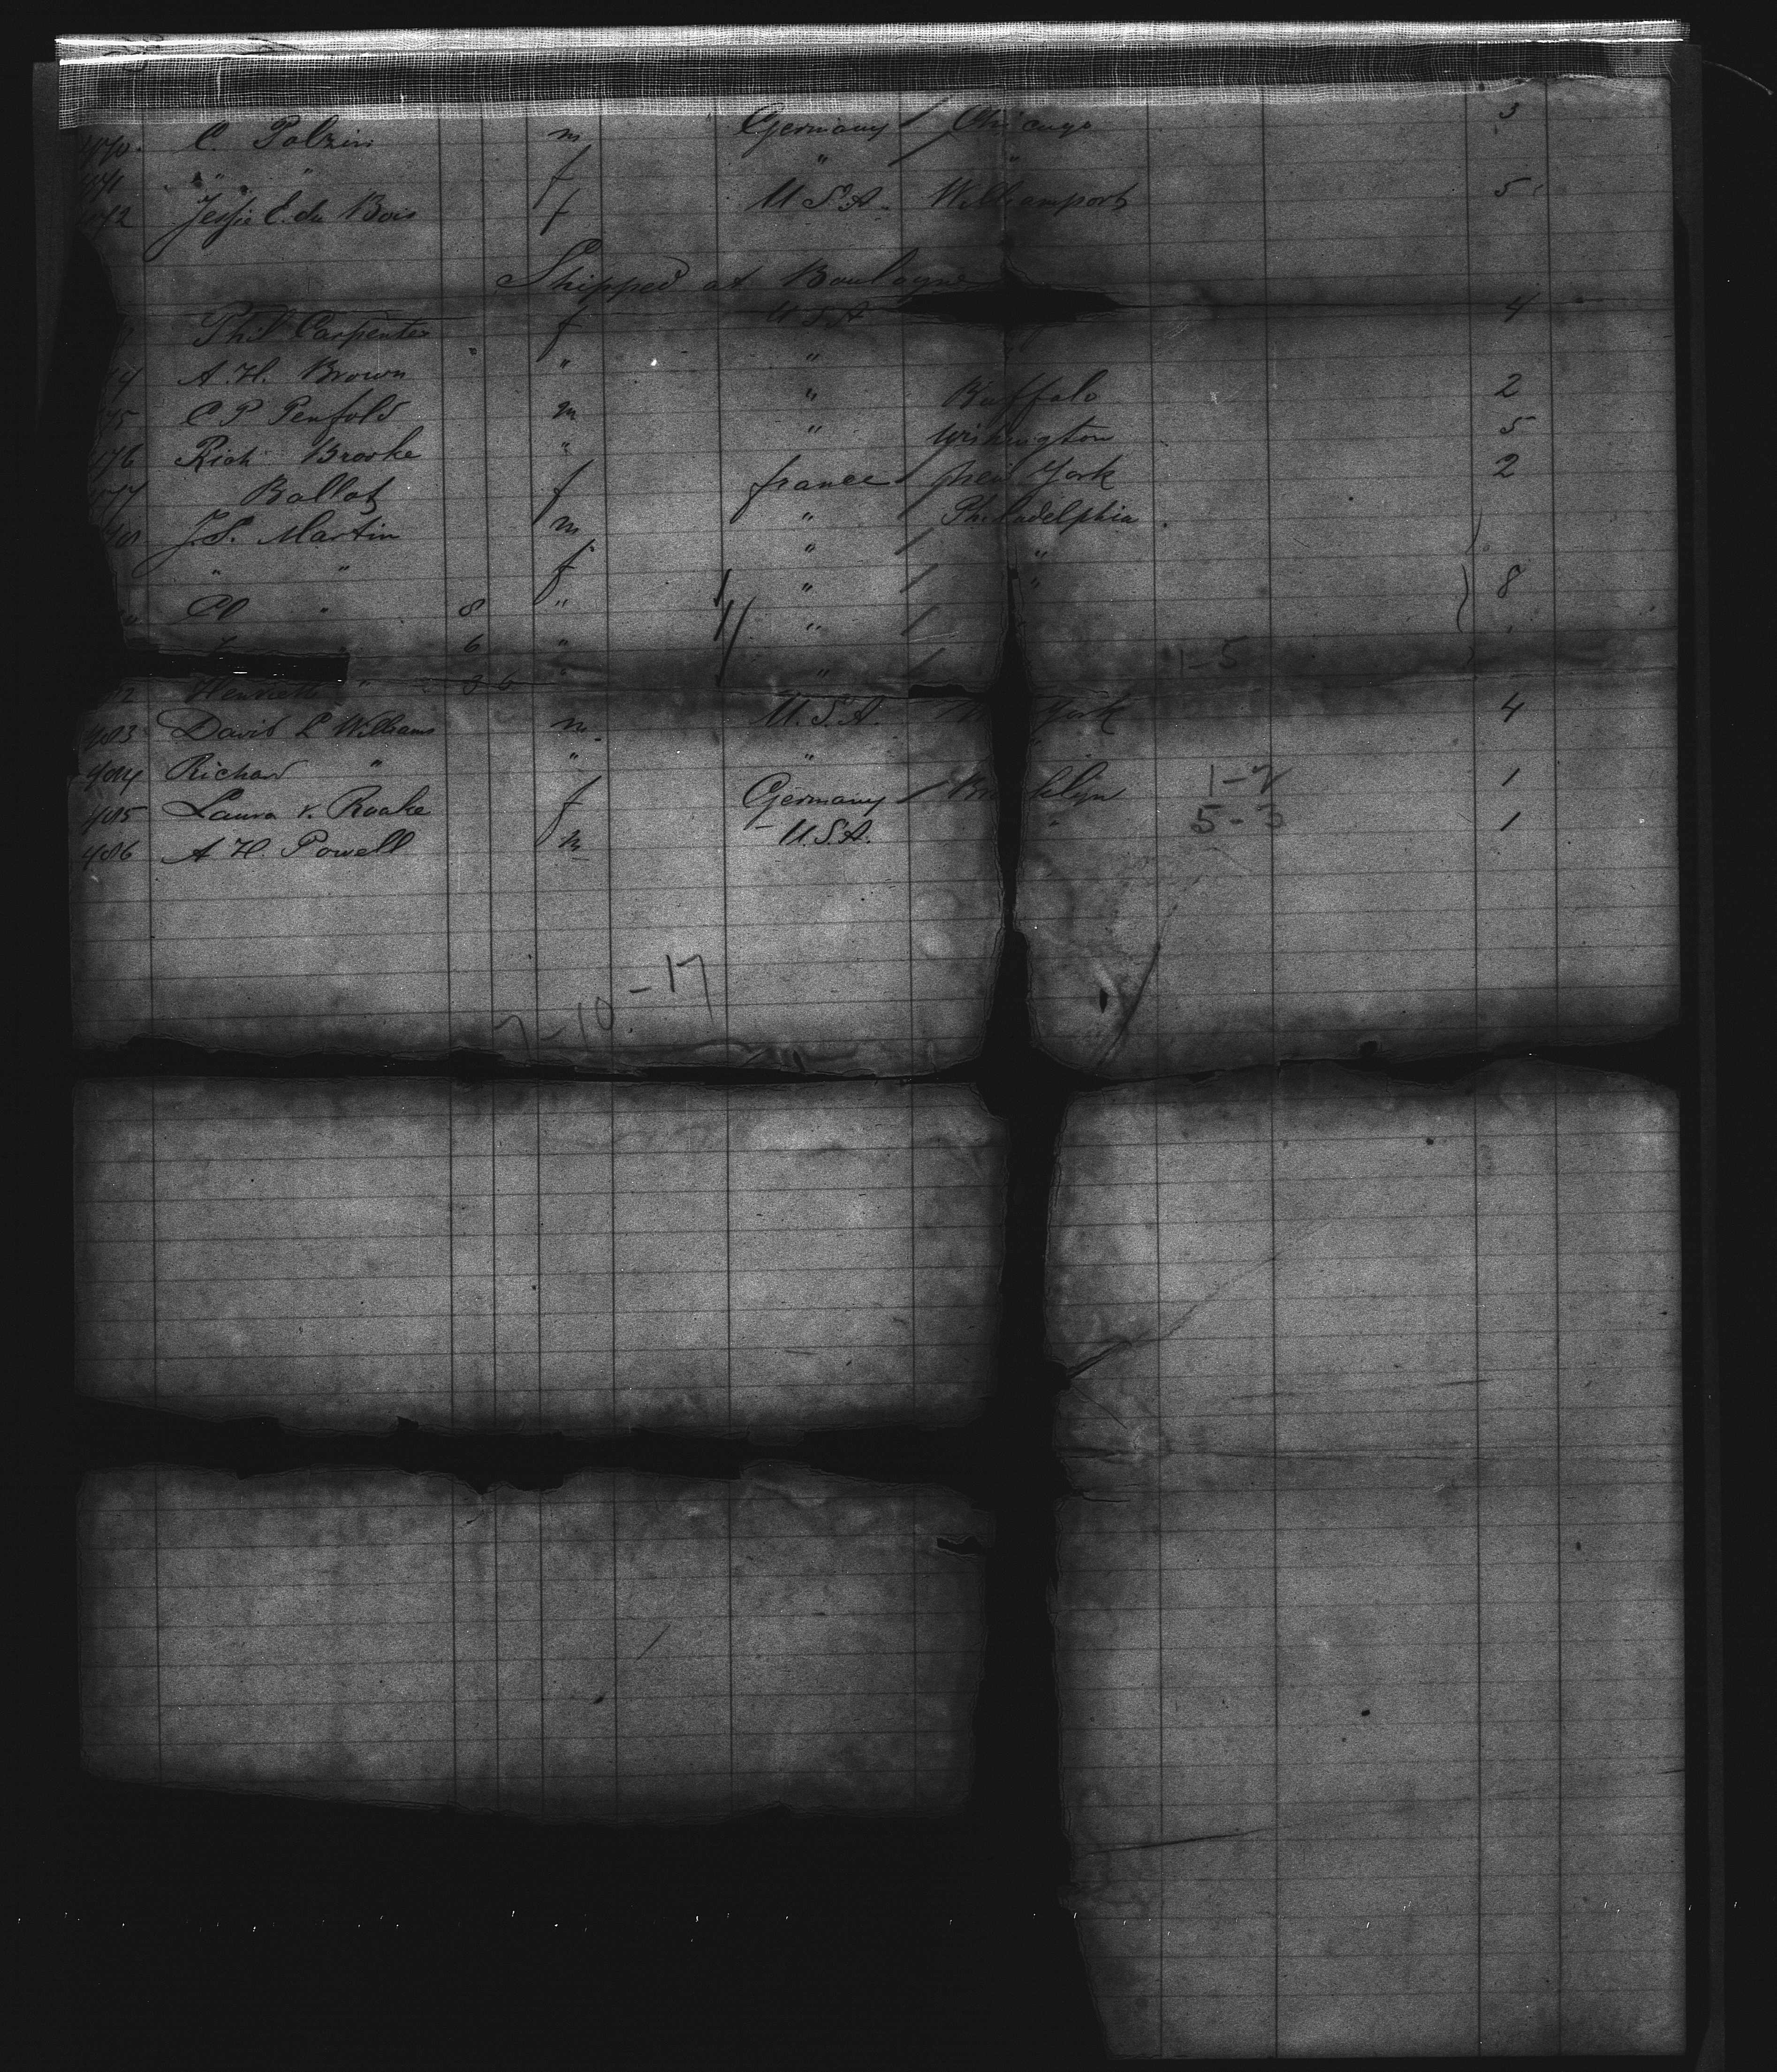 470. C. Polzin m Germany / Chicago 3
471 " " f " / "
472 Jessie E. du Bois f U.S.A. Williamsport 5
Shipped at Boulogne
Phil Carpenter f U.S.A. 4
A. H. Brown " "
75 C P Penfold m " Buffalo 2
476 Rich Brooke " " Washington 5
477 Ballot f france / New York 2
J. S. Martin m " / Philadelphia
" " f " / "
" 8 " " / " 8
6 " " /
Henriette " " " /
483 David L Williams m. U.S.A. York 4
484 Richard " " "
485 Laura v. Roake f Germany / 1
486 A H. Powell m U.S.A. " 1
1-5
1-2
5-3
7-10-17